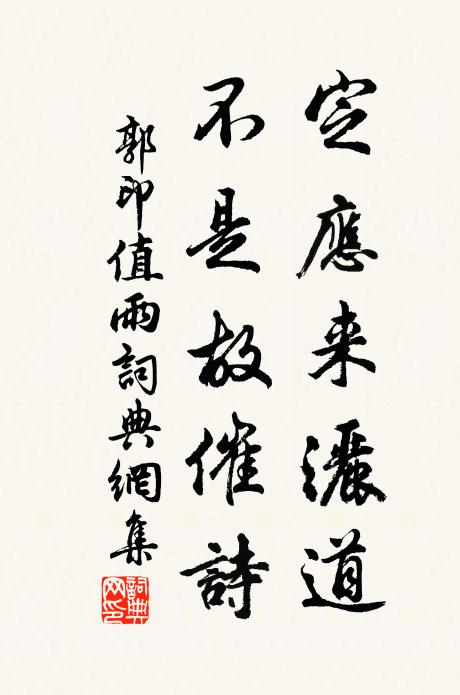 定應来灑道
不是故催詩
郭印值雨詞典網集
詞典网印